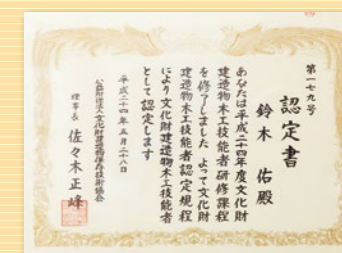 第一七九号
認定書
鈴木 佑殿
あなたは平成二十四年度文化財
建造物木工技能者研修課程
を修了しました よって文化財
建造物木工技能者認定規程
により文化財建造物木工技能者
として認定します
平成二十四年五月二十八日
公益財団法人文化財建造物保存技術協会
理事長 佐々木正峰